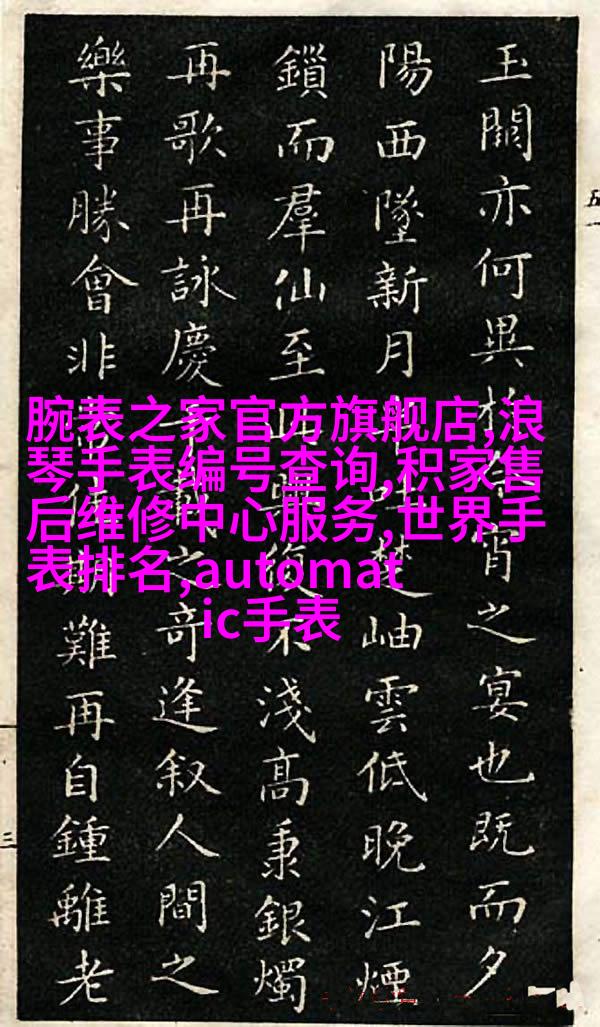 玉闕亦何異於今宵之宴也既而夕
陽西墜新月吐楚岫雲低晚江煙
鎖而羣仙至興復不淺高秉銀燭
再歌再詠慶千載之奇逢叙人間之
樂事勝會非期難再自鍾離老
五一
三
腕表之家官方旗舰店,浪
琴手表编号查询,积家售
后维修中心服务,世界手
表排名,automat
ic手表